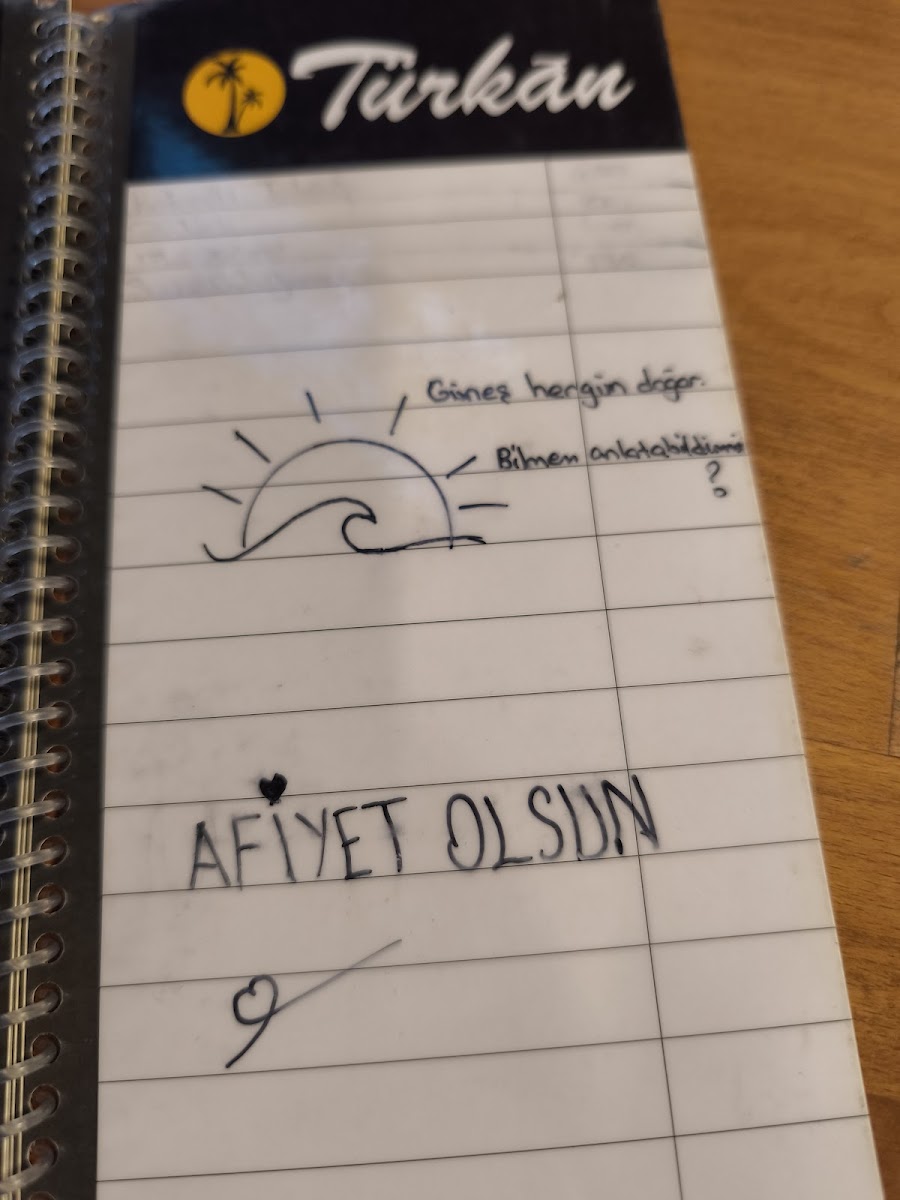 Türkān
Güneş hergün doğar.
Bilmem anlatabildimmi
?
AFİYET OLSUN